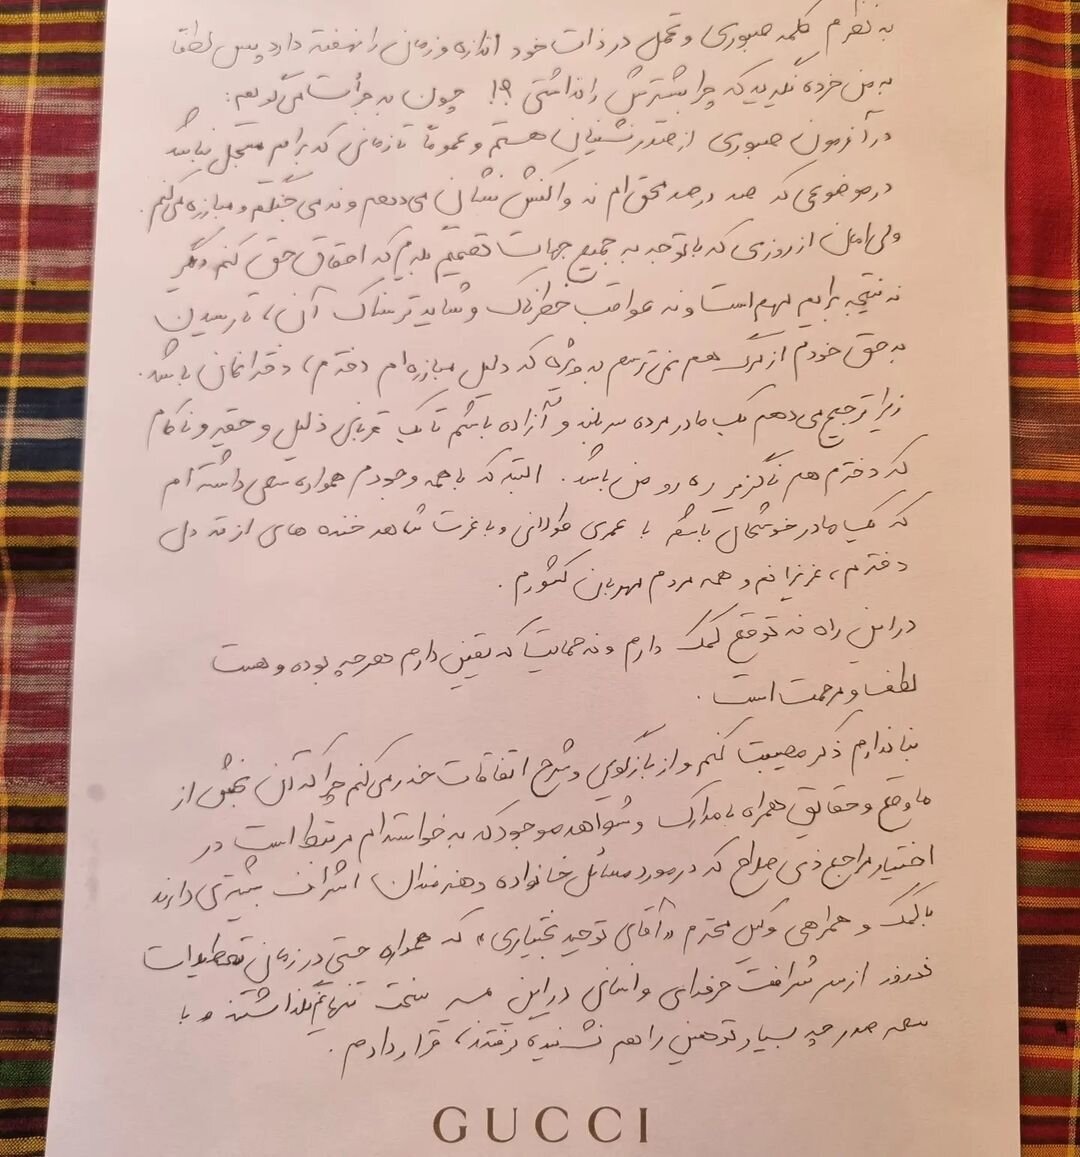 به نظرم کلمه صبوری و تحمل در ذات خود اندازه و زمان را نهفته دارد پس لطفا
به من خرده نگیرید که چرا بیشترش را نداشتی ؟! چون به جرأت می گویم:
در آزمون صبوری از صدرنشینان هستم و عموماً تا زمانی که برایم مسجل نباشد
در موضوعی که صد درصد محق ام نه واکنش نشان می دهم و نه می جنگم و مبارزه می کنم.
ولی امان از روزی که با توجه به جمیع جهات تصمیم بگیرم که احقاق حق کنم دیگر
نه نتیجه برایم مهم است و نه عواقب خطرناک و شاید ترسناک آن، تا رسیدن
به حق خودم از مرگ هم نمی ترسم به ویژه که دلیل مبارزه ام دخترم، دخترانمان باشد.
زیرا ترجیح می دهم یک مادر مرده سربلند و آزاده باشم تا یک قربانی ذلیل و حقیر و ناکام
که دخترم هم ناگزیر ره رو من باشد. البته که با همه وجودم همواره سعی داشته ام
که یک مادر خوشحال باشم با عمری طولانی و با عزت شاهد خنده های از ته دل
دخترم، عزیزانم و همه مردم مهربان کشورم.
در این راه نه توقع کمک دارم و نه حمایت که یقین دارم هر چه بوده و هست
لطف و مرحمت است.
بنا ندارم ذکر مصیبت کنم و از بازگویی و شرح اتفاقات حذر می کنم چرا که آن بخش از
ماوقع و حقایق همراه با مدارک و شواهد موجود که به خواسته ام مرتبط است در
اختیار مراجع ذی صلاح که در مورد مسائل خانواده و هنرمندان اشراف بیشتری دارند
با کمک و همراهی وکیل محترم «آقای توحید بختیاری» که همواره حتی در زمان تعطیلات
نوروز از سر شرافت حرفه ای و انسانی در این مسیر سخت تنهایم نگذاشتند و با
سعه صدر چه بسیار توهین را هم نشنیده گرفتند، قرار دادم.
GUCCI